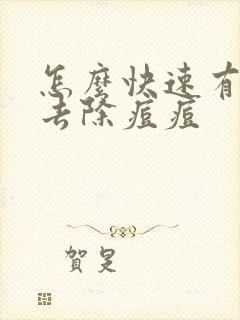 怎麼快速有
去除痘痘
賀是